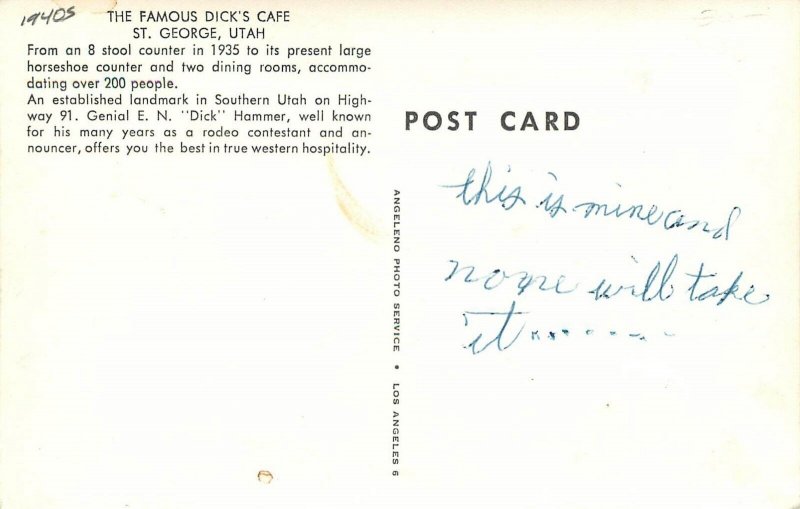 1940s
THE FAMOUS DICK'S CAFE
ST. GEORGE, UTAH
From an 8 stool counter in 1935 to its present large
horseshoe counter and two dining rooms, accommo-
dating over 200 people.
An established landmark in Southern Utah on High-
way 91. Genial E. N. "Dick" Hammer, well known
for his many years as a rodeo contestant and an-
nouncer, offers you the best in true western hospitality.
POST CARD
this is mine and
none will take
it........
ANGELENO PHOTO SERVICE • LOS ANGELES 6